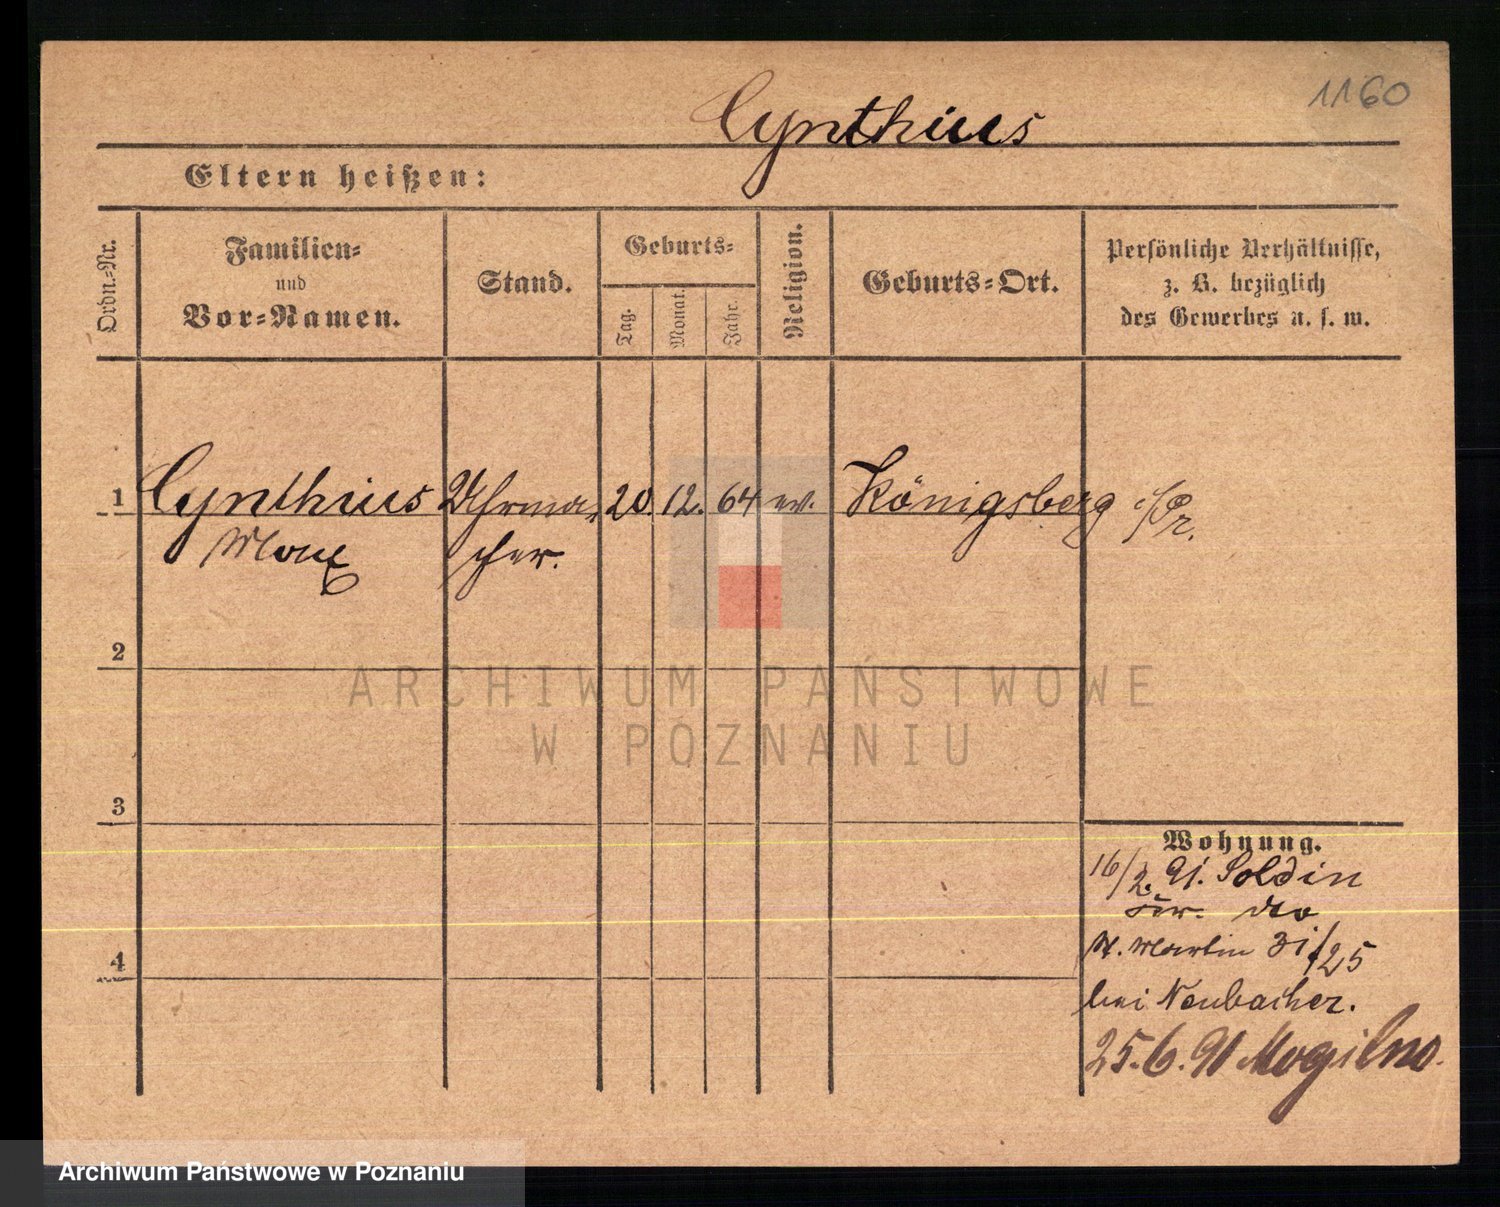 1160
Cynthius
Eltern heißen:
Ordn.-Nr.
Familien-
und
Vor-Namen.
Stand.
Geburts-
Tag.
Monat.
Jahr.
Religion.
Geburts-Ort.
Persönliche Verhältnisse,
z. B. bezüglich
des Gewerbes u. s. w.
1 Cynthius Uhrma- 20. 12. 64 ev. Königsberg i/Pr.
Max cher.
2
ARCHIWUM PAŃSTWOWE
W POZNANIU
3
4
Wohnung.
16/2. 91. Soldin
St. Martin 31/25
bei Neubacher.
25.6.91 Mogilno.
Archiwum Państwowe w Poznaniu